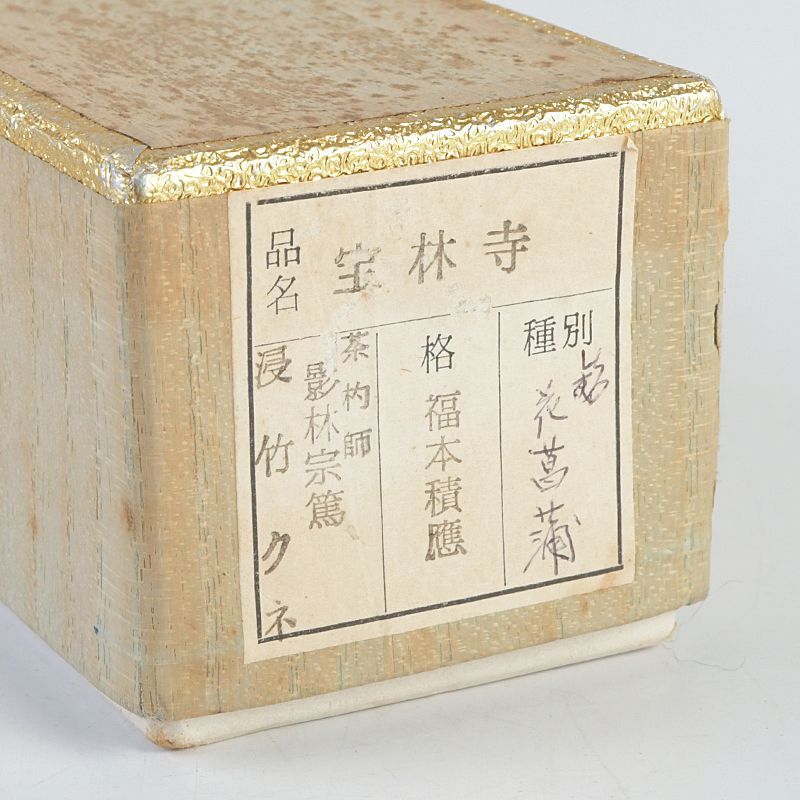 品名
宝林寺
種別
銘
花菖蒲
格
福本積應
茶杓師
影林宗篤
浸竹クネ